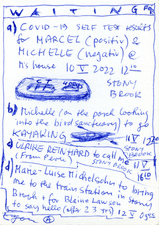 WAITING
a) COVID-19 SELF TEST RESULTS
for MARCEL (positiv) &
MICHELLE (negativ) @
his house 10 V 2022 12 10
STONY
BROOK
b) Michelle (on the porch looking
into the bird sanctuary) to go
KAYAKING
11 V
STONY BROOK
c) ULRIKE REINHARD to call me
(from Peru)
11 V
d) Marie-Luise Michelsohn to bring
me to the train station in Stony
Brook
to say hello (after 2 3 yrs) 12 V